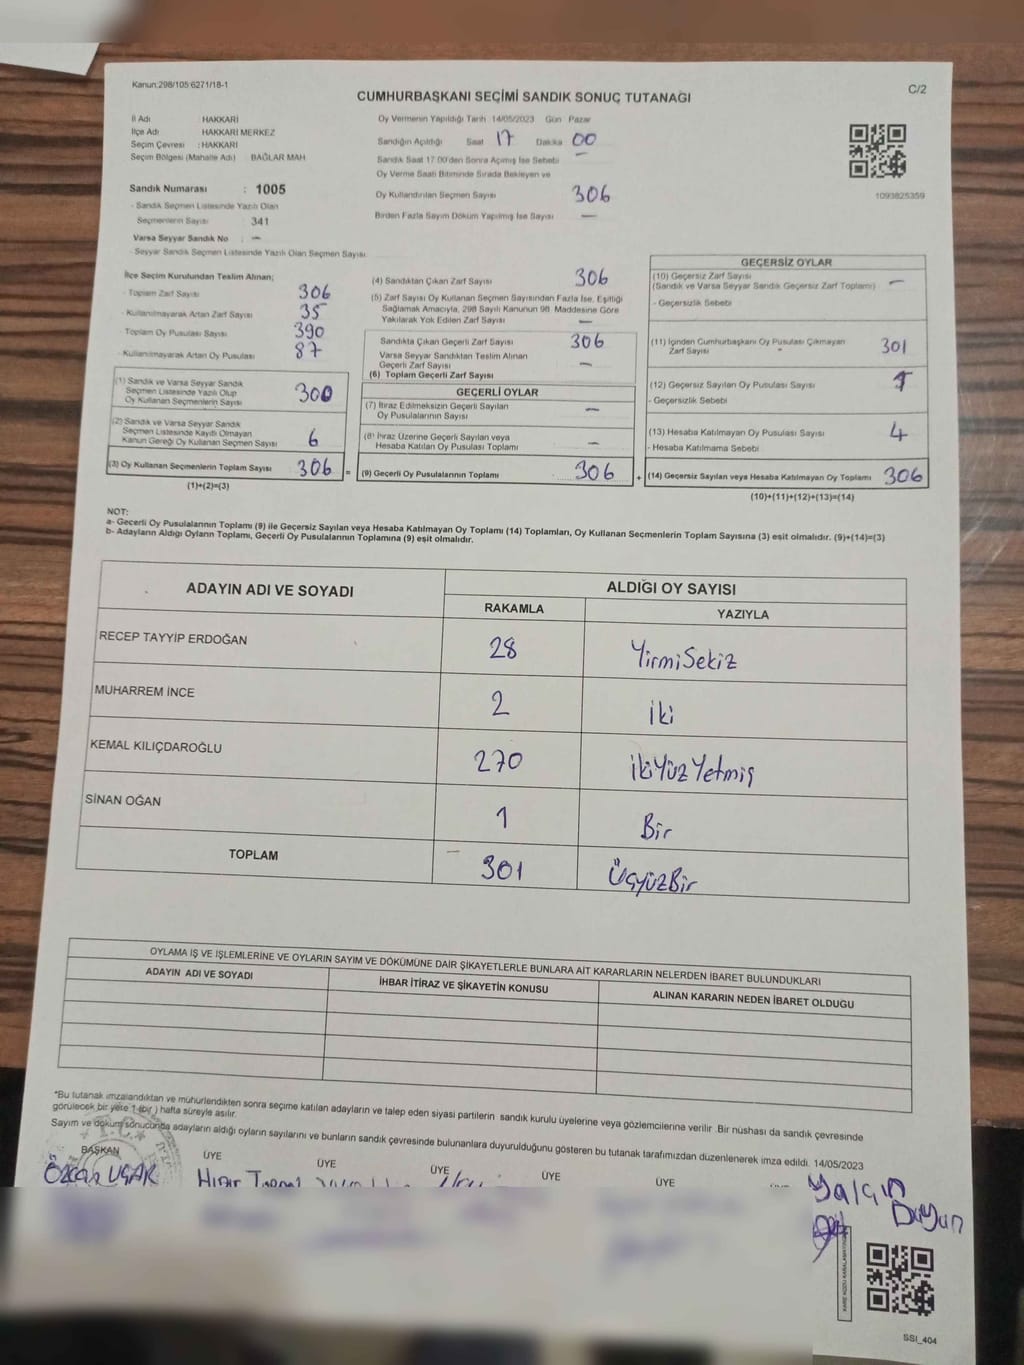 Kanun:298/105 6271/18-1
C/2
CUMHURBAŞKANI SEÇİMİ SANDIK SONUÇ TUTANAĞI
İl Adı : HAKKARİ
İlçe Adı HAKKARİ MERKEZ
Seçim Çevresi : HAKKARİ
Seçim Bölgesi (Mahalle Adı) BAĞLAR MAH
Sandık Numarası : 1005
- Sandık Seçmen Listesinde Yazılı Olan
Seçmenlerin Sayısı 341
Varsa Seyyar Sandık No : –
- Seyyar Sandık Seçmen Listesinde Yazılı Olan Seçmen Sayısı
Oy Vermenin Yapıldığı Tarih 14/05/2023 Gün Pazar
Sandığın Açıldığı Saat 17 Dakika 00
Sandık Saat 17.00'den Sonra Açımış İse Sebebi –
Oy Verme Saati Bitiminde Sırada Bekleyen ve
Oy Kullandırılan Seçmen Sayısı 306
Birden Fazla Sayım Döküm Yapılmış İse Sayısı –
1093825359
İlçe Seçim Kurulundan Teslim Alınan;
- Toplam Zarf Sayısı 306
- Kullanılmayarak Artan Zarf Sayısı 35
- Toplam Oy Pusulası Sayısı 390
- Kullanılmayarak Artan Oy Pusulası 87
(1) Sandık ve Varsa Seyyar Sandık
Seçmen Listesinde Yazılı Olup
Oy Kullanan Seçmenlerin Sayısı 300
(2) Sandık ve Varsa Seyyar Sandık
Seçmen Listesinde Kayıtlı Olmayan
Kanun Gereği Oy Kullanan Seçmen Sayısı 6
(3) Oy Kullanan Seçmenlerin Toplam Sayısı 306 =
(1)+(2)=(3)
(4) Sandıktan Çıkan Zarf Sayısı 306
(5) Zarf Sayısı Oy Kullanan Seçmen Sayısından Fazla İse, Eşitliği
Sağlamak Amacıyla, 298 Sayılı Kanunun 98. Maddesine Göre
Yakılarak Yok Edilen Zarf Sayısı –
Sandıkta Çıkan Geçerli Zarf Sayısı 306
Varsa Seyyar Sandıktan Teslim Alınan
Geçerli Zarf Sayısı –
(6) Toplam Geçerli Zarf Sayısı
GEÇERLİ OYLAR
(7) İtiraz Edilmeksizin Geçerli Sayılan
Oy Pusulalarının Sayısı –
(8) İtiraz Üzerine Geçerli Sayılan veya
Hesaba Katılan Oy Pusulası Toplamı –
(9) Geçerli Oy Pusulalarının Toplamı 306 +
GEÇERSİZ OYLAR
(10) Geçersiz Zarf Sayısı
(Sandık ve Varsa Seyyar Sandık Geçersiz Zarf Toplamı) –
- Geçersizlik Sebebi
(11) İçinden Cumhurbaşkanı Oy Pusulası Çıkmayan
Zarf Sayısı 301
(12) Geçersiz Sayılan Oy Pusulası Sayısı 1
- Geçersizlik Sebebi
(13) Hesaba Katılmayan Oy Pusulası Sayısı 4
- Hesaba Katılmama Sebebi
(14) Geçersiz Sayılan veya Hesaba Katılmayan Oy Toplamı 306
(10)+(11)+(12)+(13)=(14)
NOT:
a- Geçerli Oy Pusulalarının Toplamı (9) ile Geçersiz Sayılan veya Hesaba Katılmayan Oy Toplamı (14) Toplamları, Oy Kullanan Seçmenlerin Toplam Sayısına (3) eşit olmalıdır. (9)+(14)=(3)
b- Adayların Aldığı Oyların Toplamı, Geçerli Oy Pusulalarının Toplamına (9) eşit olmalıdır.
ADAYIN ADI VE SOYADI ALDIĞI OY SAYISI
RAKAMLA YAZIYLA
RECEP TAYYİP ERDOĞAN 28 YirmiSekiz
MUHARREM İNCE 2 İki
KEMAL KILIÇDAROĞLU 270 ikiYüzYetmiş
SİNAN OĞAN 1 Bir
TOPLAM 301 ÜçyüzBir
OYLAMA İŞ VE İŞLEMLERİNE VE OYLARIN SAYIM VE DÖKÜMÜNE DAİR ŞİKAYETLERLE BUNLARA AİT KARARLARIN NELERDEN İBARET BULUNDUKLARI
ADAYIN ADI VE SOYADI İHBAR İTİRAZ VE ŞİKAYETİN KONUSU ALINAN KARARIN NEDEN İBARET OLDUĞU
*Bu tutanak imzalandıktan ve mühürlendikten sonra seçime katılan adayların ve talep eden siyasi partilerin sandık kurulu üyelerine veya gözlemcilerine verilir. Bir nüshası da sandık çevresinde
görülecek bir yere 1 (bir) hafta süreyle asılır.
Sayım ve döküm sonucunda adayların aldığı oyların sayılarını ve bunların sandık çevresinde bulunanlara duyurulduğunu gösteren bu tutanak tarafımızdan düzenlenerek imza edildi. 14/05/2023
T.C.
BAŞKAN ÜYE ÜYE ÜYE ÜYE ÜYE
Özcan UÇAR
Yalçın
Duyan
SSI_404